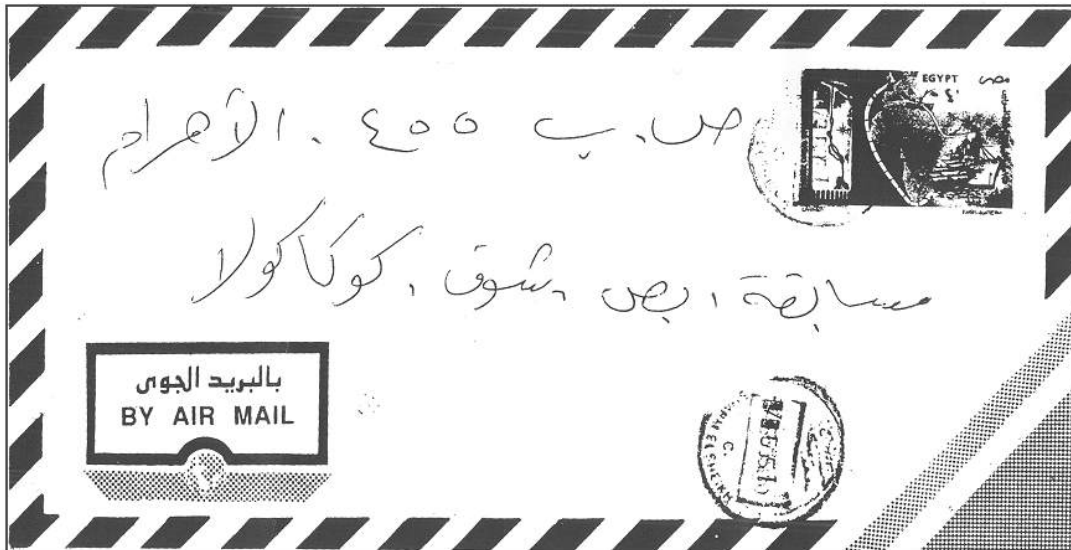 EGYPT مصر
ص. ب ٤٥٥ . الأهرام
مسابقة ، بص ، شوق ، كوكاكولا
بالبريد الجوى
BY AIR MAIL
EL SHEIKH
C.